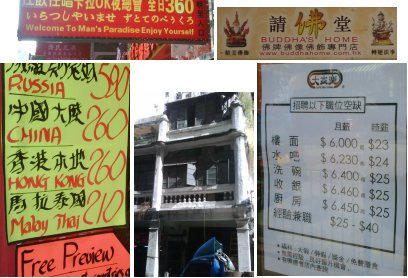 任飲任唱卡拉OK夜總會 全日360
いらっしやいませ ずとてのべうくろ
Welcome To Man's Paradise Enjoy Yourself
請佛堂
BUDDHA'S HOME
佛牌佛像佛飾專門店
www.buddhahome.com.hk
590
RUSSIA
中國大陸 260
CHINA
香港本地 260
HONG KONG
馬拉泰國 210
Malay Thai
Free Preview
大家樂
招聘以下職位空缺
月薪 時薪
樓面 $6,000 $23
水吧 $6,230 $24
洗碗 $6,400 $25
收銀 $6,460 $25
廚房 $6,450 $25
經驗兼職 $25 - $40